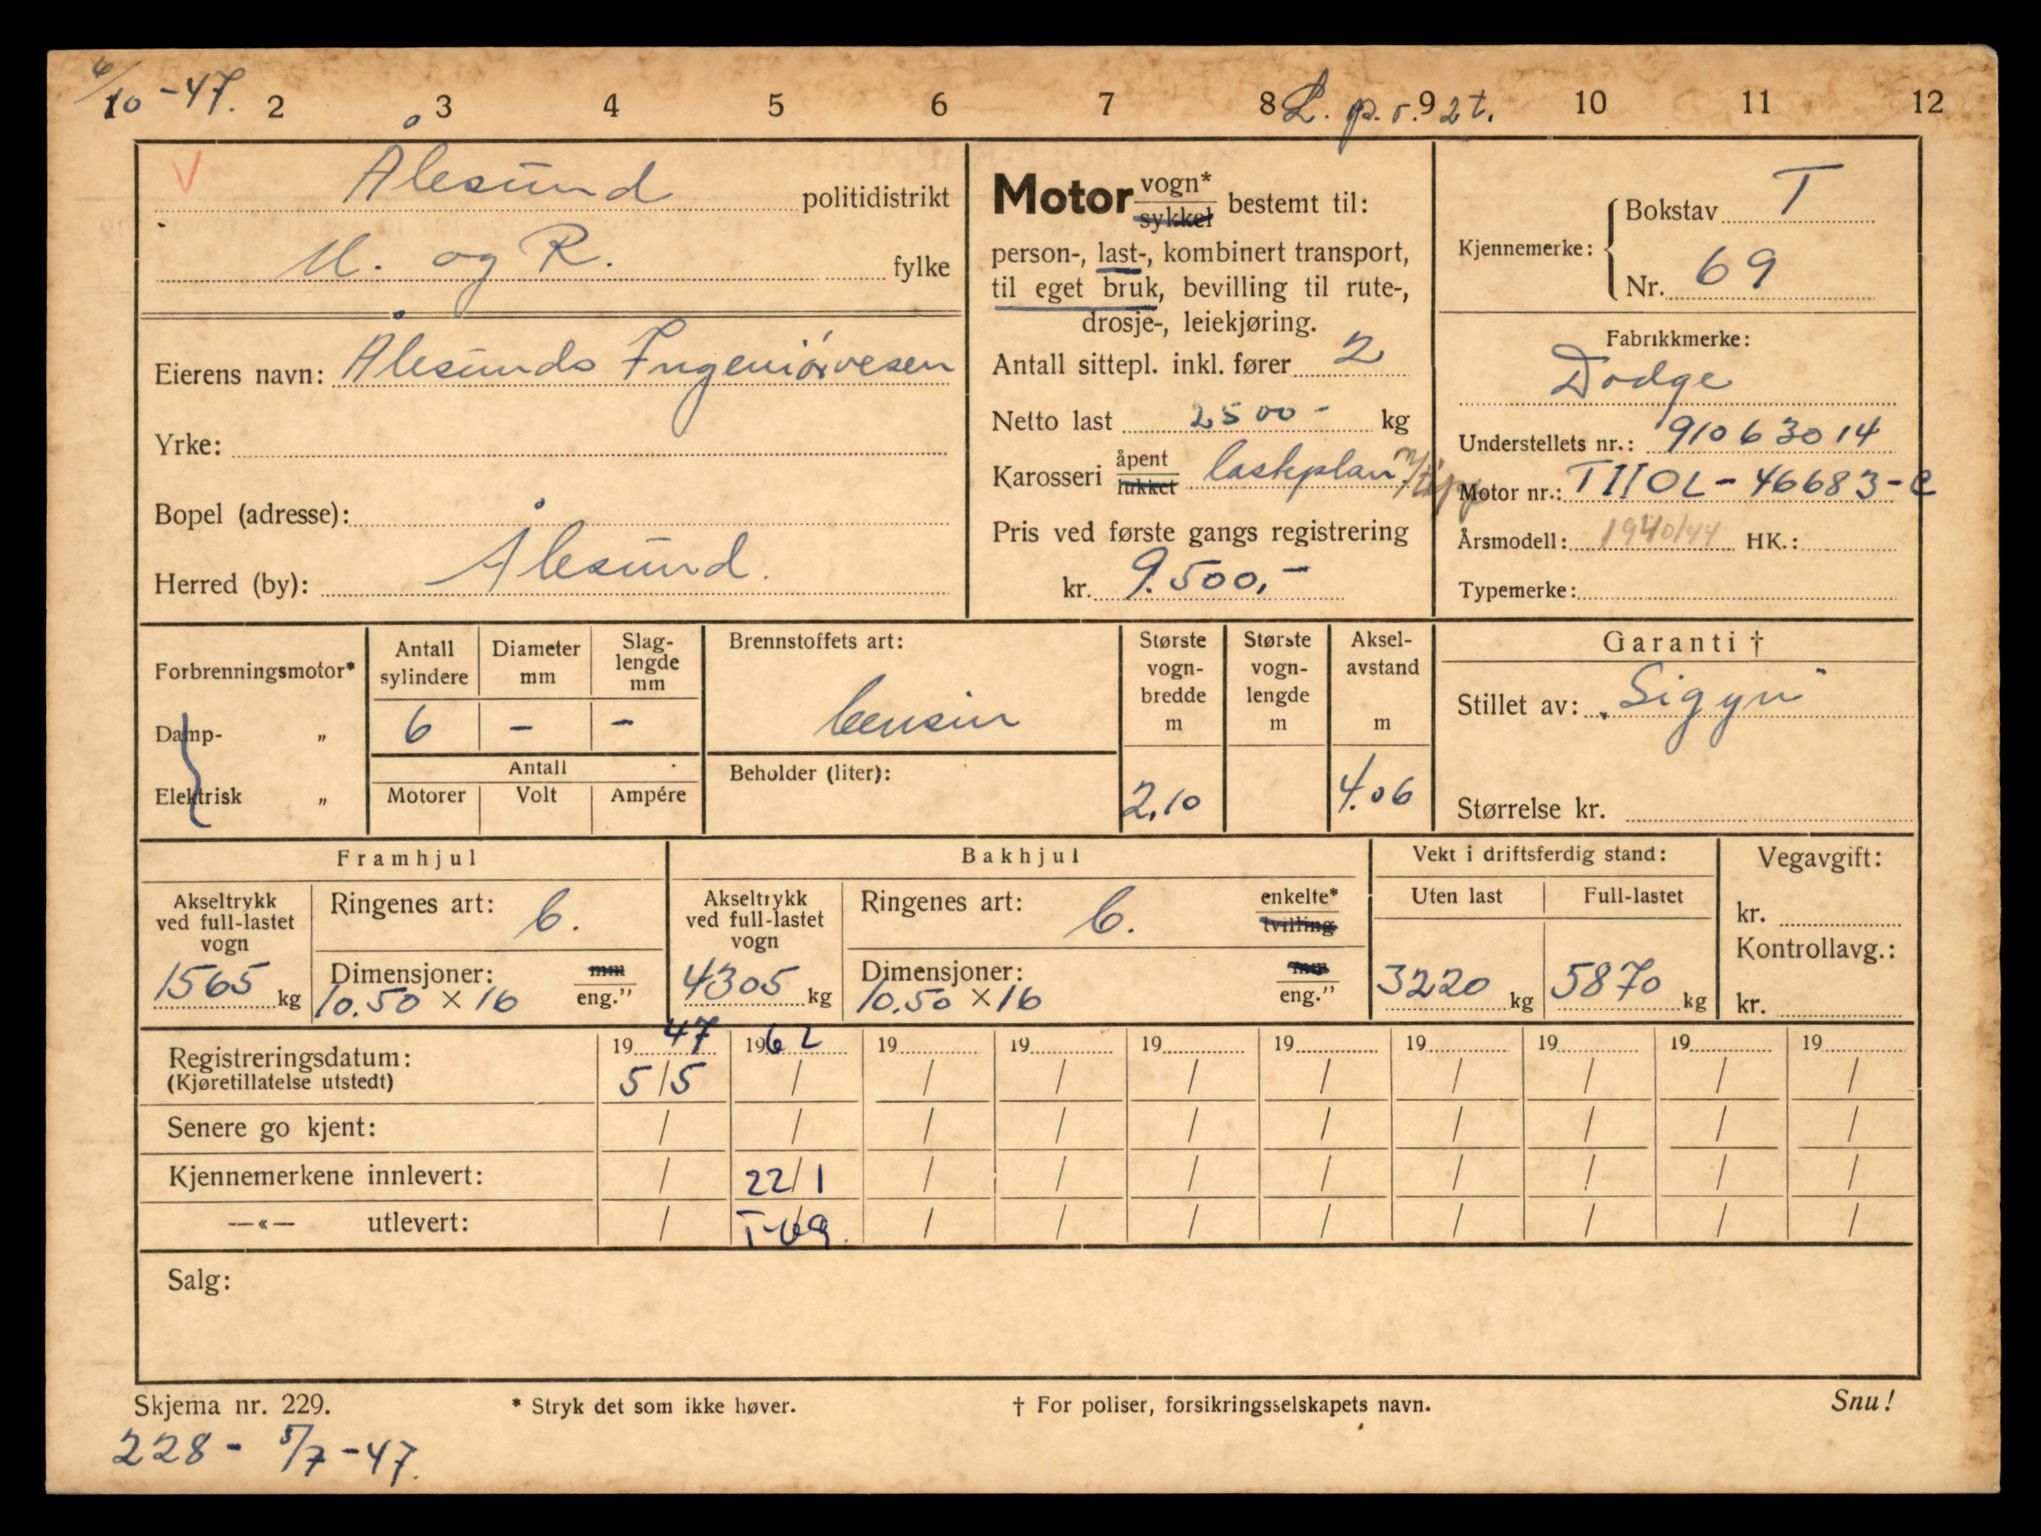 6/10-47. 2 3 4 5 6 7 8 L. p. r. 9 2t. 10 11 12
V Ålesund politidistrikt
M. og R. fylke
Eierens navn: Ålesunds Ingeniørvesen
Yrke:
Bopel (adresse):
Herred (by): Ålesund.
Motor vogn* sykkel bestemt til:
person-, last-, kombinert transport,
til eget bruk, bevilling til rute-,
drosje-, leiekjøring.
Antall sittepl. inkl. fører 2
Netto last 2500- kg
Karosseri åpent lukket lasteplan m/tipp
Pris ved første gangs registrering
kr. 9.500,-
Kjennemerke: Bokstav T
Nr. 69
Fabrikkmerke:
Dodge
Understellets nr.: 91063014
Motor nr.: T110L-46683-C
Årsmodell: 1940/44 HK.:
Typemerke:
Forbrenningsmotor*
Damp- „
Elektrisk „
Antall sylindere Diameter mm Slag-lengde mm
6 - -
Antall
Motorer Volt Ampére
Brennstoffets art:
bensin
Beholder (liter):
Største vogn-bredde m
2,10
Største vogn-lengde m
Aksel-avstand m
4.06
Garanti †
Stillet av: „Sigyn"
Størrelse kr.
Framhjul
Akseltrykk ved full-lastet vogn
1565 kg
Ringenes art: b.
Dimensjoner: mm eng."
10.50 × 16
Bakhjul
Akseltrykk ved full-lastet vogn
4305 kg
Ringenes art: b. enkelte* tvilling
Dimensjoner: mm eng."
10.50 × 16
Vekt i driftsferdig stand:
Uten last Full-lastet
3220 kg 5870 kg
Vegavgift:
kr.
Kontrollavg.:
kr.
19 47 19 62 19 19 19 19 19 19 19 19
Registreringsdatum: 5/5 / / / / / / / / /
(Kjøretillatelse utstedt)
Senere go kjent: / / / / / / / / / /
Kjennemerkene innlevert: / 22/1 / / / / / / / /
—«— utlevert: / T-69. / / / / / / / /
Salg:
Skjema nr. 229. * Stryk det som ikke høver. † For poliser, forsikringsselskapets navn. Snu!
228- 5/7-47.